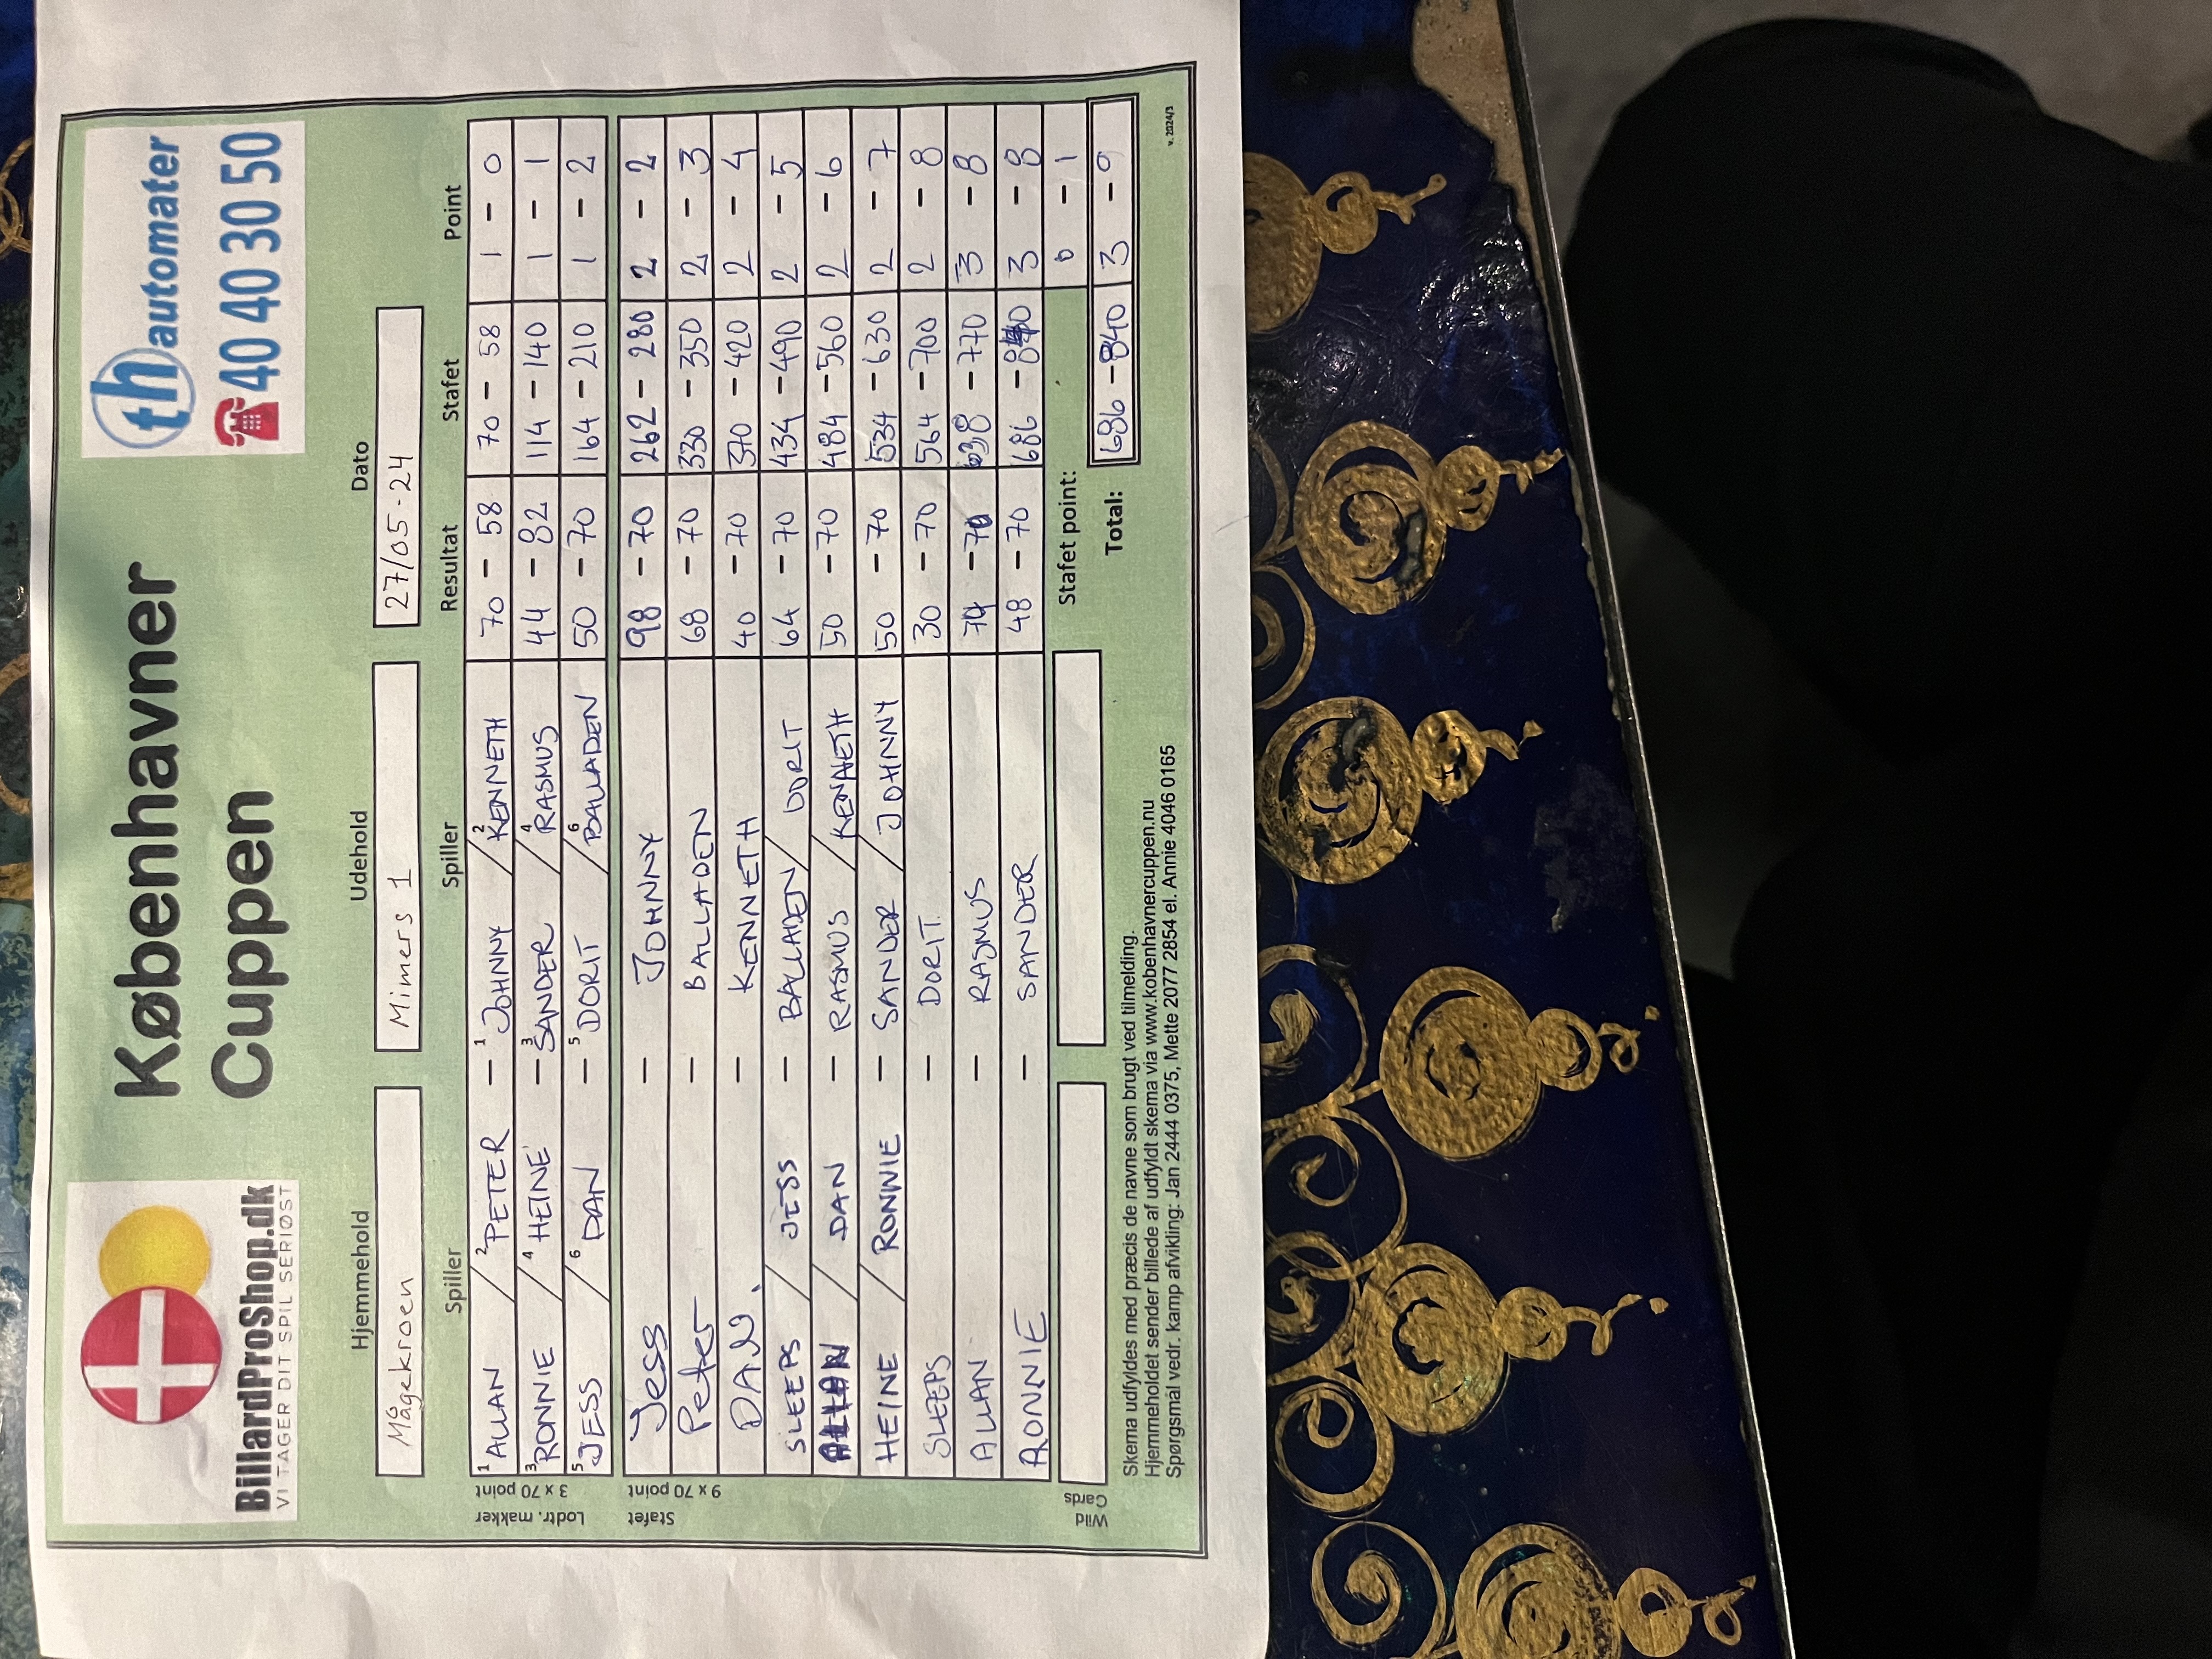 BillardProShop.dk
VI TAGER DIT SPIL SERIØST
Københavner
Cuppen
th automater
40 40 30 50
Hjemmehold Udehold Dato
Mågekroen Mimers 1 27/05-24
Spiller Spiller Resultat Stafet Point
Lodtr. makker
3 x 70 point
1 ALLAN / 2 PETER - 1 JOHNNY / 2 KENNETH 70 - 58 70 - 58 1 - 0
3 RONNIE / 4 HEINE - 3 SANDER / 4 RASMUS 44 - 82 114 - 140 1 - 1
5 JESS / 6 DAN - 5 DORIT / 6 BALLADEN 50 - 70 164 - 210 1 - 2
Stafet
9 x 70 point
Jess - JOHNNY 98 - 70 262 - 280 2 - 2
Peter - BALLADEN 68 - 70 330 - 350 2 - 3
DAN. - KENNETH 40 - 70 370 - 420 2 - 4
SLEEPS / JESS - BALLADEN / DORIT 64 - 70 434 - 490 2 - 5
/ DAN - RASMUS / KENNETH 50 - 70 484 - 560 2 - 6
HEINE / RONNIE - SANDER / JOHNNY 50 - 70 534 - 630 2 - 7
SLEEPS - DORIT 30 - 70 564 - 700 2 - 8
ALLAN - RASMUS 74 - 70 638 - 770 3 - 8
RONNIE - SANDER 48 - 70 686 - 840 3 - 8
Wild
Cards
Stafet point: 0 - 1
Total: 686 - 840 3 - 9
Skema udfyldes med præcis de navne som brugt ved tilmelding.
Hjemmeholdet sender billede af udfyldt skema via www.kobenhavnercuppen.nu
Spørgsmål vedr. kamp afvikling: Jan 2444 0375, Mette 2077 2854 el. Annie 4046 0165
v. 2024/3